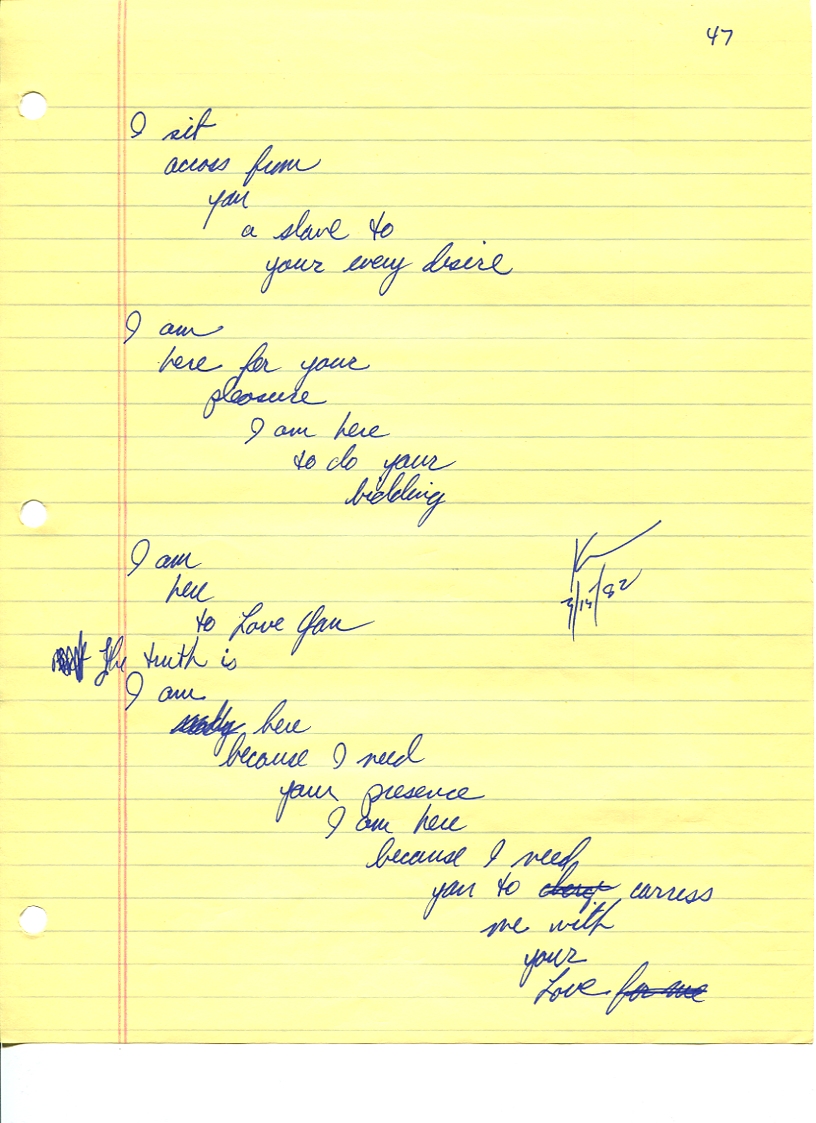 47
I sit
across from
you
a slave to
your every desire
I am
here for your
pleasure
I am here
to do your
bidding
I am
here
to Love You
The truth is
I am
here
because I need
your presence
I am here
because I need
you to carress
me with
your
Love for me